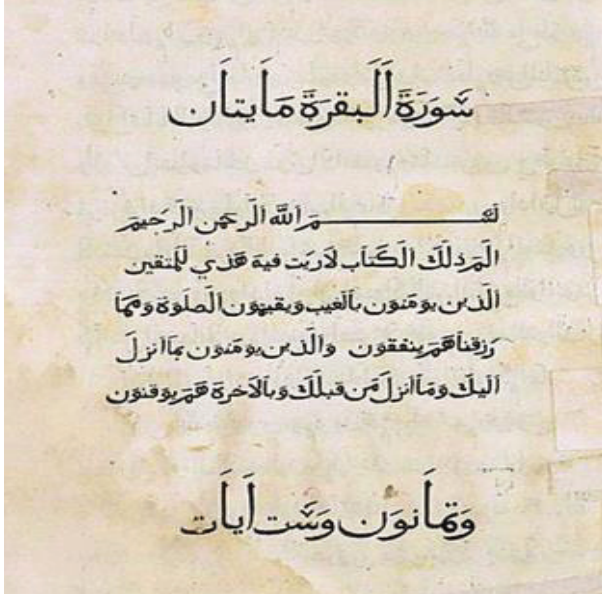 سورة البقرة مايتان
بسم الله الرحمن الرحيم
الم ذلك الكتاب لاريب فيه هدي للمتقين
الذين يومنون بالغيب ويقيمون الصلوة ومما
رزقناهم ينفقون والذين يومنون بما انزل
اليك وما انزل من قبلك وبالاخرة هم يوقنون
وتمانون وست ايات